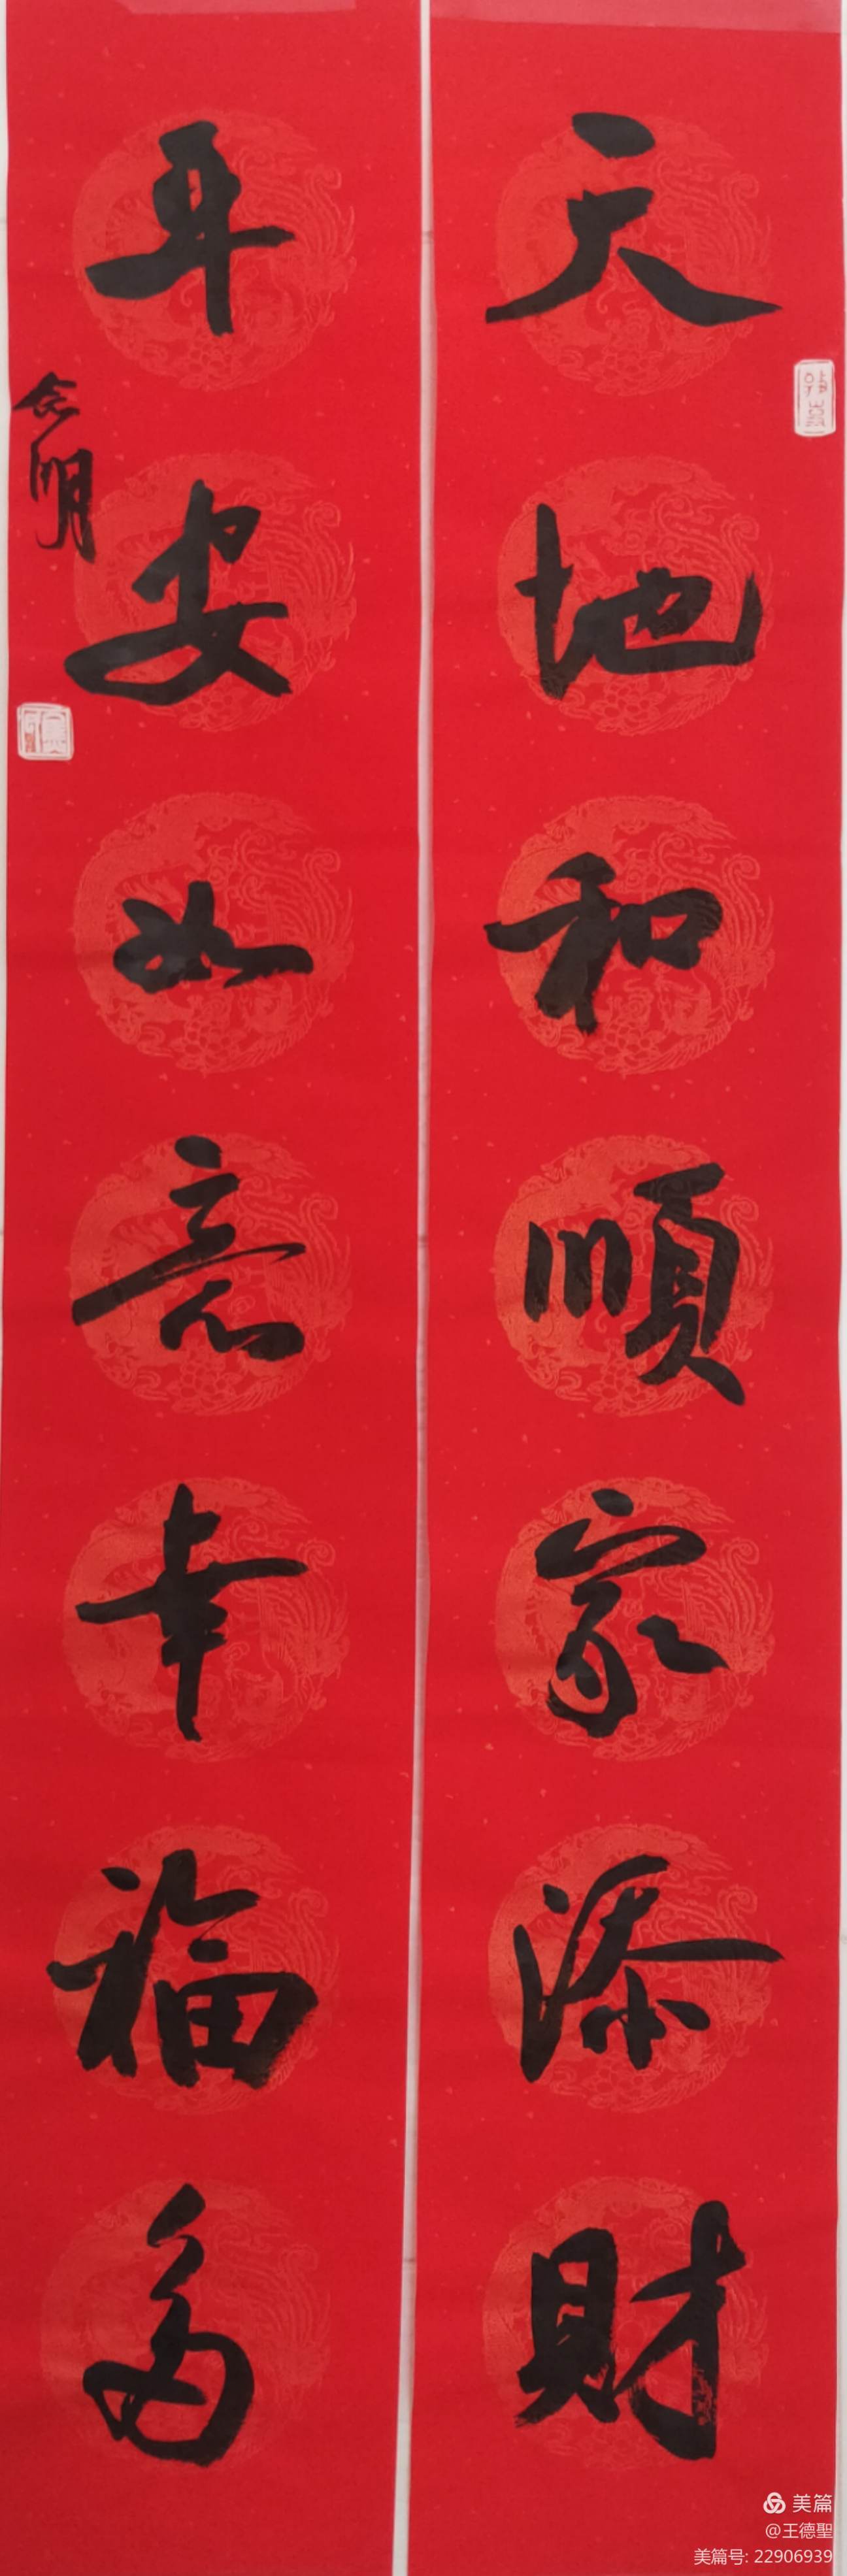 天地和順家添財
平安如意幸福多
念明
美篇
@王德聖
美篇号: 22906939